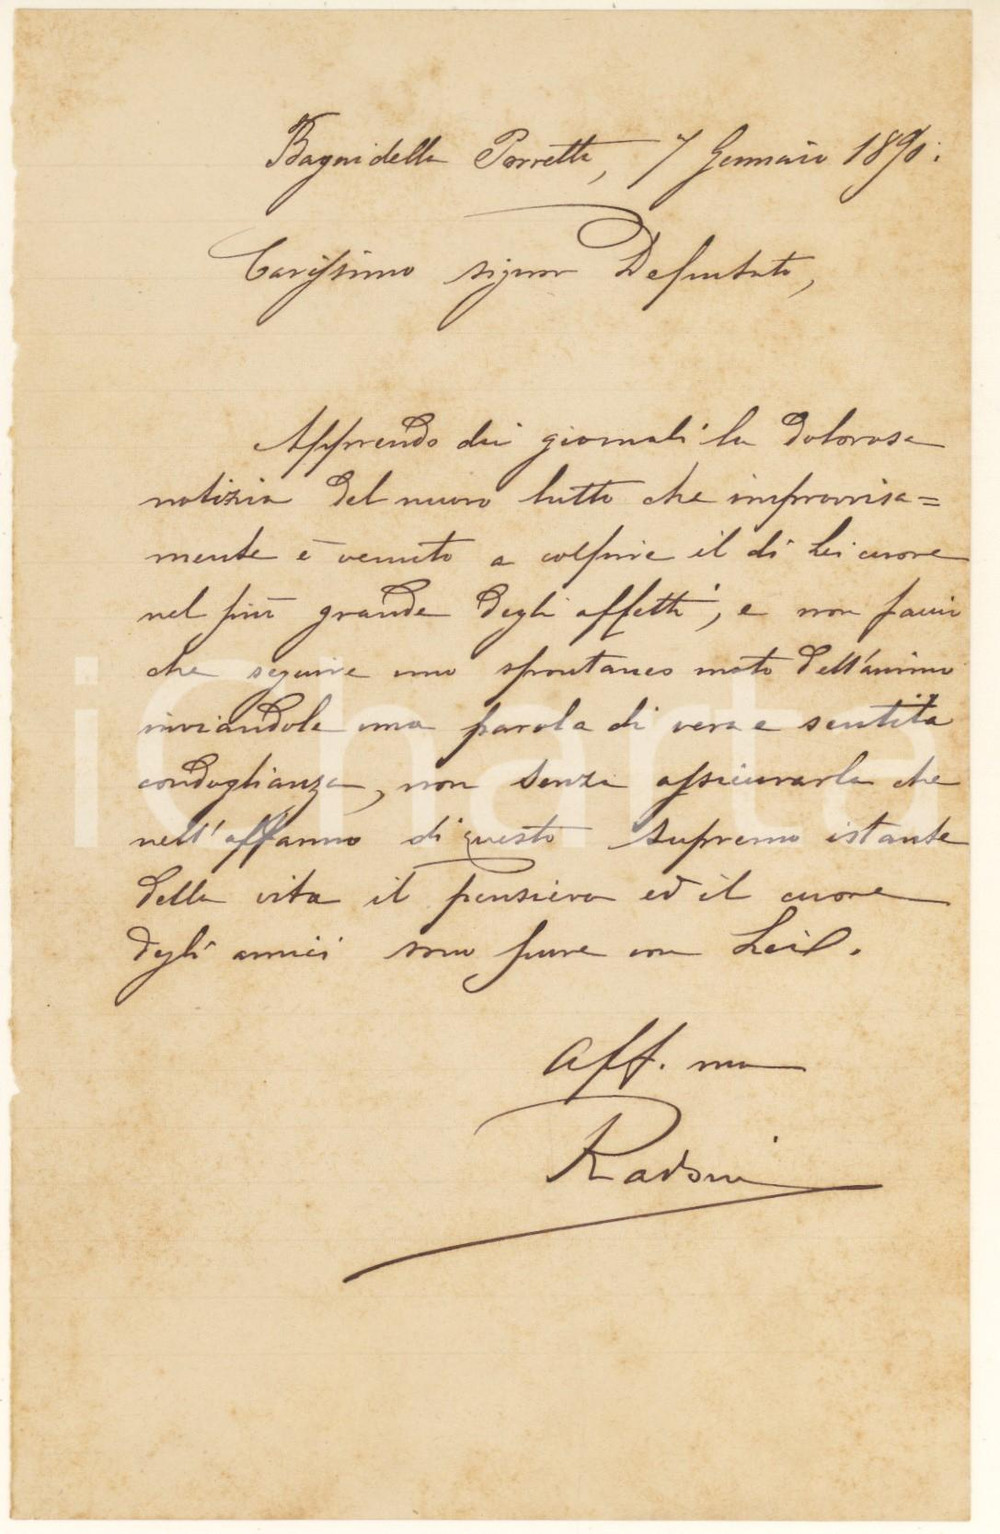 Bagni della Porretta, 7 Gennaio 1890.
Carissimo signor Deputato,
Apprendo dai giornali la dolorosa
notizia del nuovo lutto che improvvisa=
mente è venuto a colpire il di Lei cuore
nel più grande degli affetti, e non faccio
che seguire uno spontaneo moto dell'animo
inviandole una parola di vera e sentita
condoglianza, non senza assicurarla che
nell'affanno di questo supremo istante
della vita il pensiero ed il cuore
degli amici sono pure con Lei.
Aff. mo
iCharta